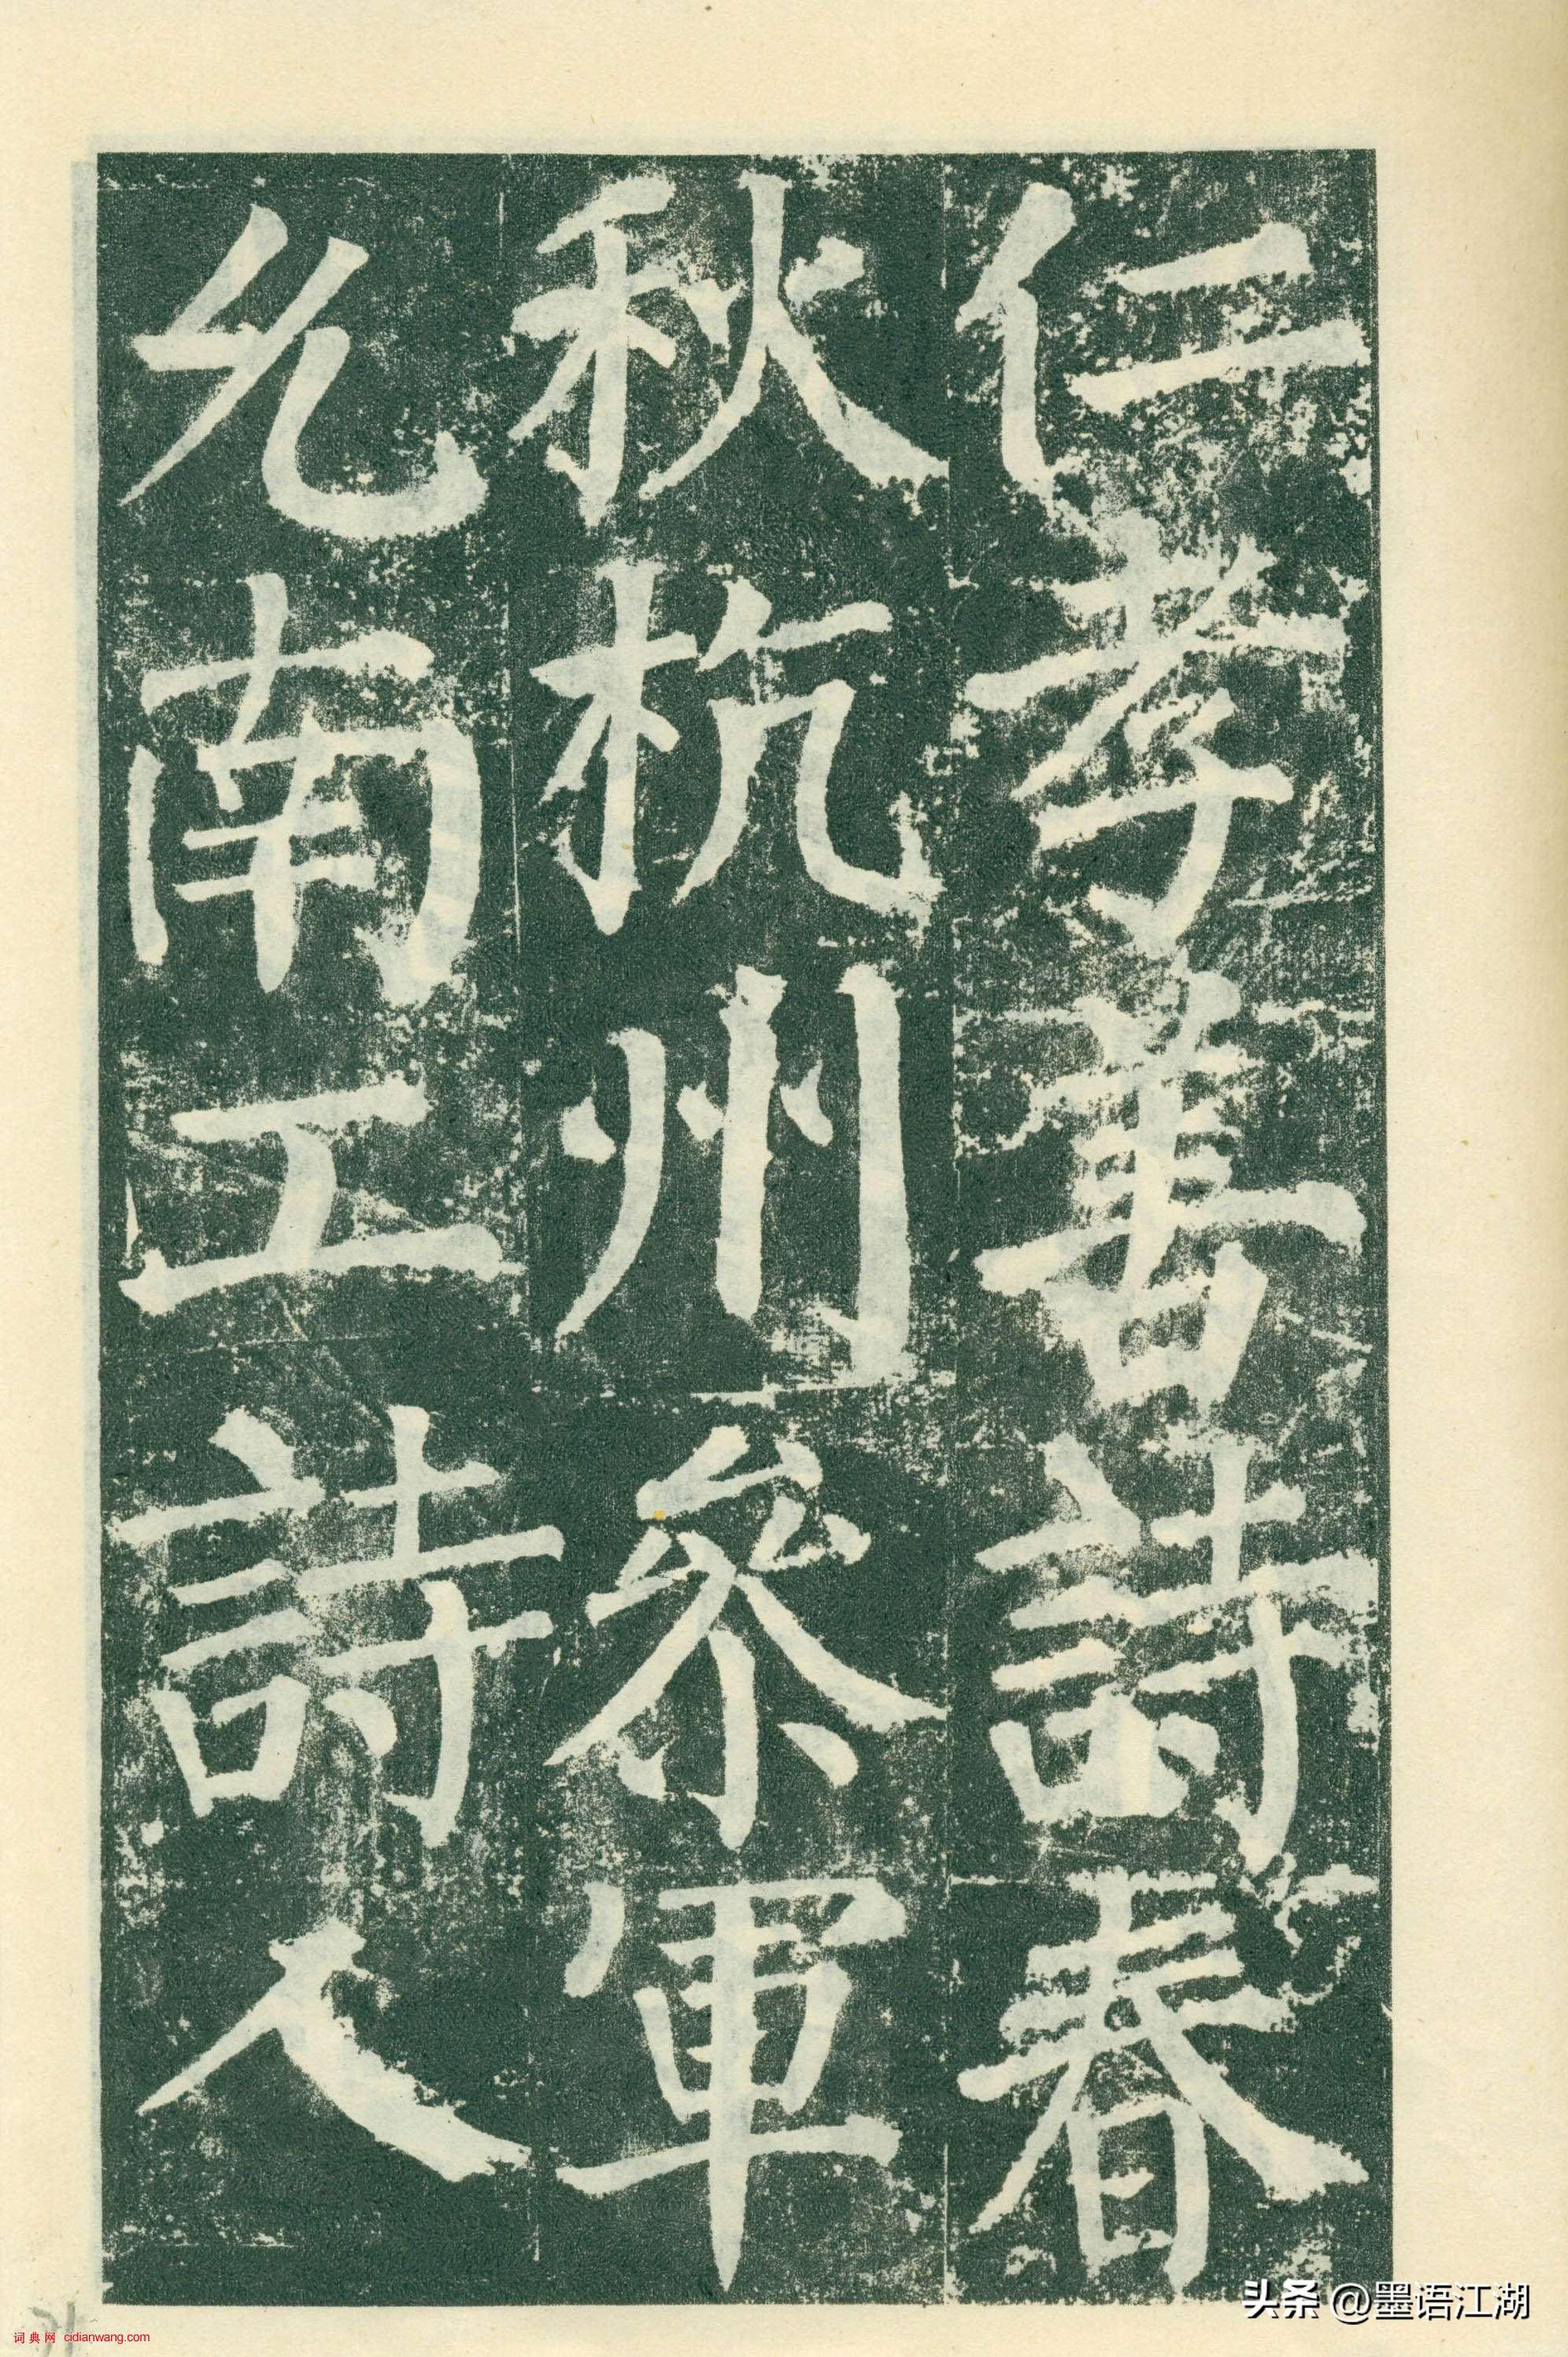 仁孝善詩春
秋杭州參軍
允南工詩人
头条 @墨语江湖
词典网 cidianwang.com